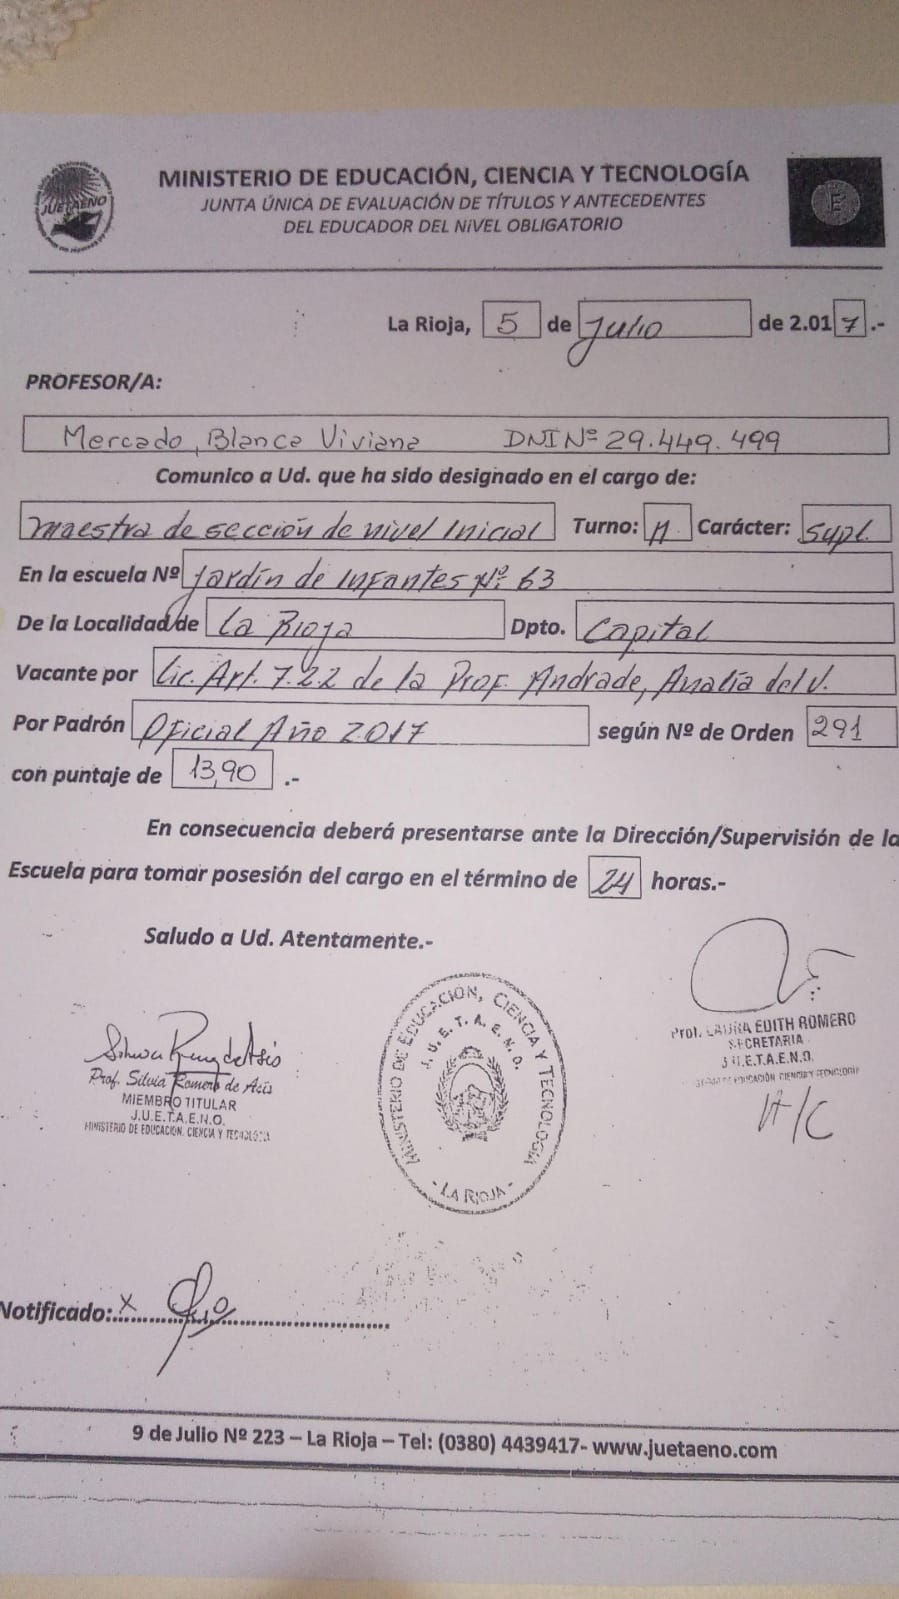 JUETAENO
MINISTERIO DE EDUCACIÓN, CIENCIA Y TECNOLOGÍA
JUNTA ÚNICA DE EVALUACIÓN DE TÍTULOS Y ANTECEDENTES
DEL EDUCADOR DEL NiVEL OBLIGATORIO
La Rioja, 5 de Julio de 2.017.-
PROFESOR/A:
Mercado, Blanca Viviana DNI Nº 29.449.499
Comunico a Ud. que ha sido designado en el cargo de:
maestra de sección de nivel Inicial Turno: M Carácter: Supl.
En la escuela Nº Jardín de Infantes Nº 63
De la Localidad de La Rioja Dpto. Capital
Vacante por Lic. Art. 7.2.2 de la Prof. Andrade, Analía del V.
Por Padrón Oficial Año 2017 según Nº de Orden 291
con puntaje de 13,90 .-
En consecuencia deberá presentarse ante la Dirección/Supervisión de la
Escuela para tomar posesión del cargo en el término de 24 horas.-
Saludo a Ud. Atentamente.-
Prof. Silvia Romero de Asís
MIEMBRO TITULAR
J.U.E.T.A.E.N.O.
MINISTERIO DE EDUCACION, CIENCIA Y TECNOLOGIA
MINISTERIO DE EDUCACION, CIENCIA Y TECNOLOGIA
J.U.E.T.A.E.N.O.
- LA RIOJA -
Prof. LAURA EDITH ROMERO
SECRETARIA
J.U.E.T.A.E.N.O.
EDUCACIÓN CIENCIA Y TECNOLOGIA
A/C
Notificado: x
9 de Julio Nº 223 – La Rioja – Tel: (0380) 4439417- www.juetaeno.com